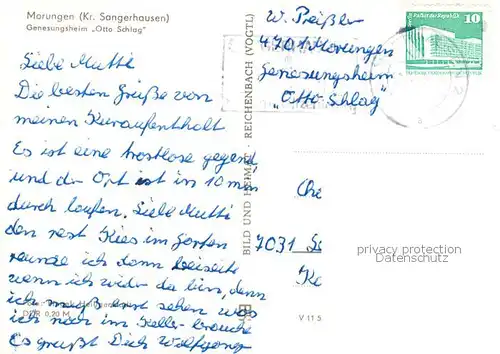 Morungen (Kr. Sangerhausen)
Genesungsheim „Otto Schlag"
Liebe Mutti
Die besten Grüße von
meinen Kuraufenthalt
Es ist eine trostlose gegend,
und der Ort ist in 10 min
durch laufen. Liebe Mutti
den rest Kies im Garten
räume ich dann beiseite
wenn ich wider da bin, denn
ich muß erst sehen was
ich noch im Keller brauche
Es grüßt Dich Wolfgang
DDR 0,20 M
BILD UND HEIMAT · REICHENBACH (VOGTL)
W. Preißler
4701 Morungen
Genesungsheim
„Otto-Schlag"
Palast der Republik
10
7031
V 11 5
privacy protection
Datenschutz